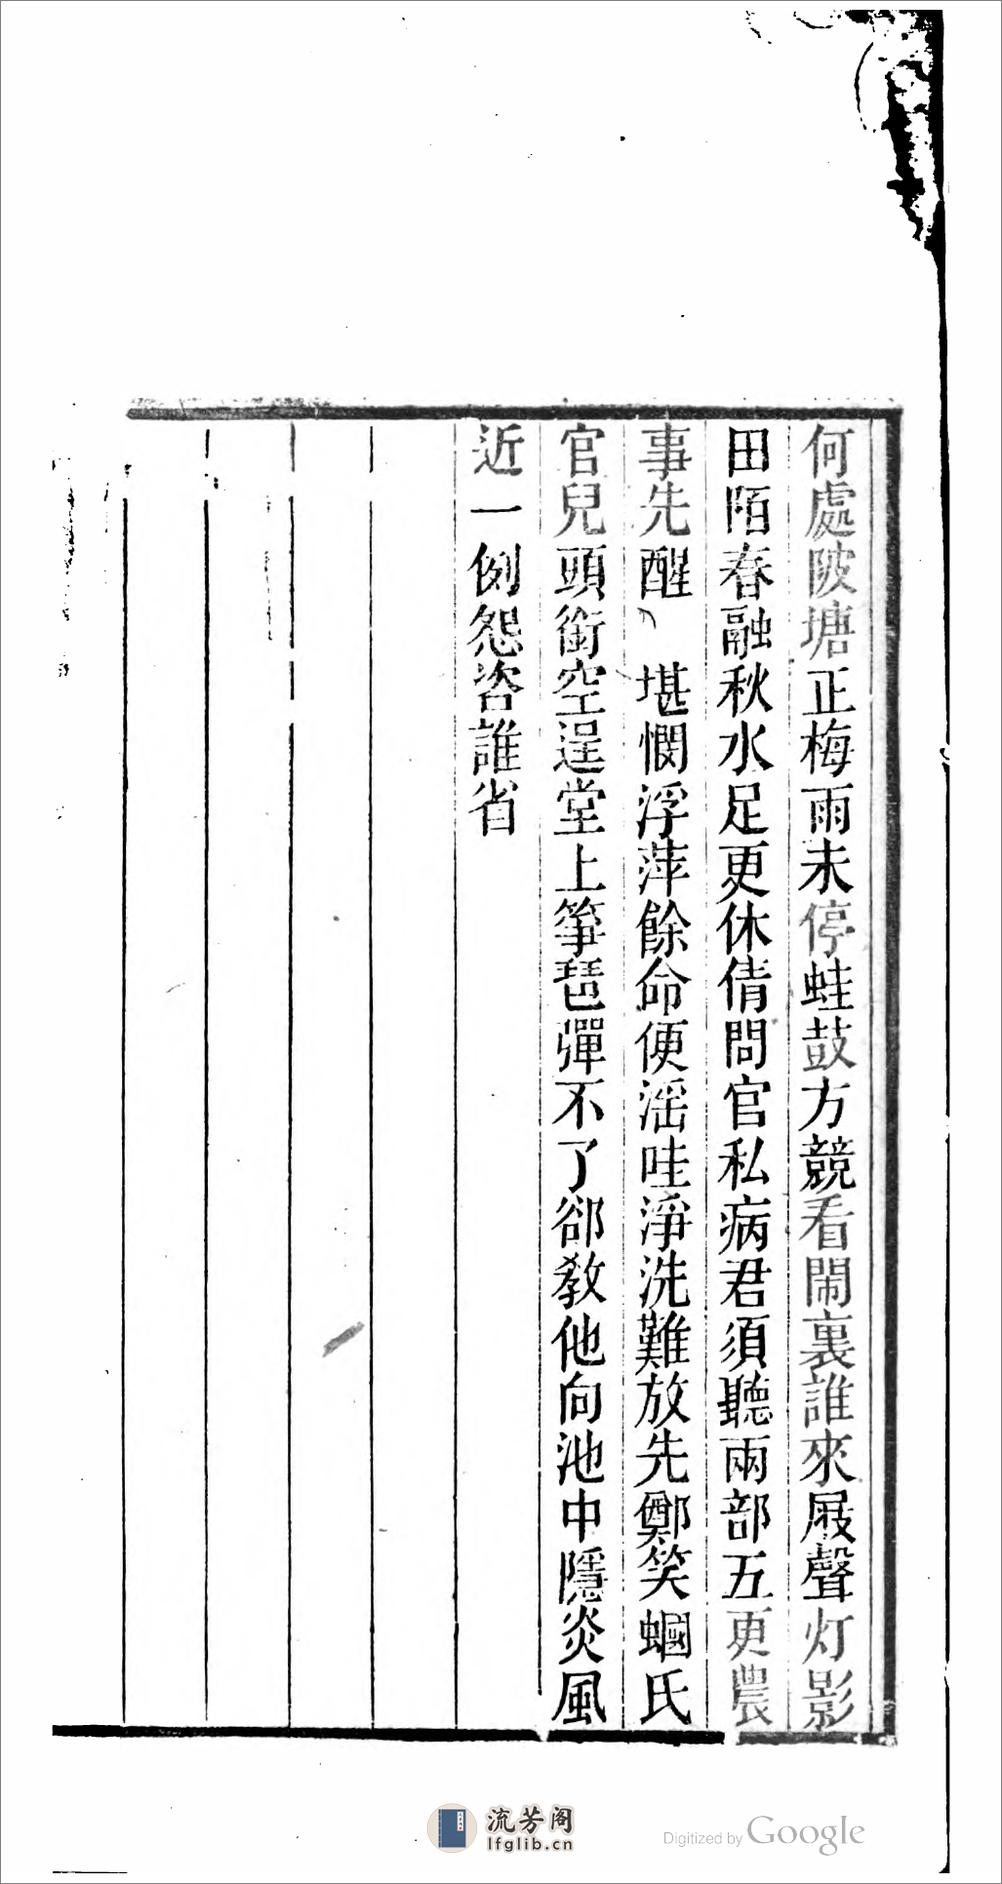 何處陂塘正梅雨未停蛙鼓方競看鬧裏誰來屐聲灯影
田陌春融秋水足更休倩問官私病君須聽兩部五更農
事先醒　堪憫浮萍餘命便滛哇淨洗難放先鄭笑蟈氏
官兒頭銜空逞堂上箏琶彈不了郤教他向池中隱炎風
近一例怨咨誰省
流芳阁
lfglib.cn
Digitized by Google